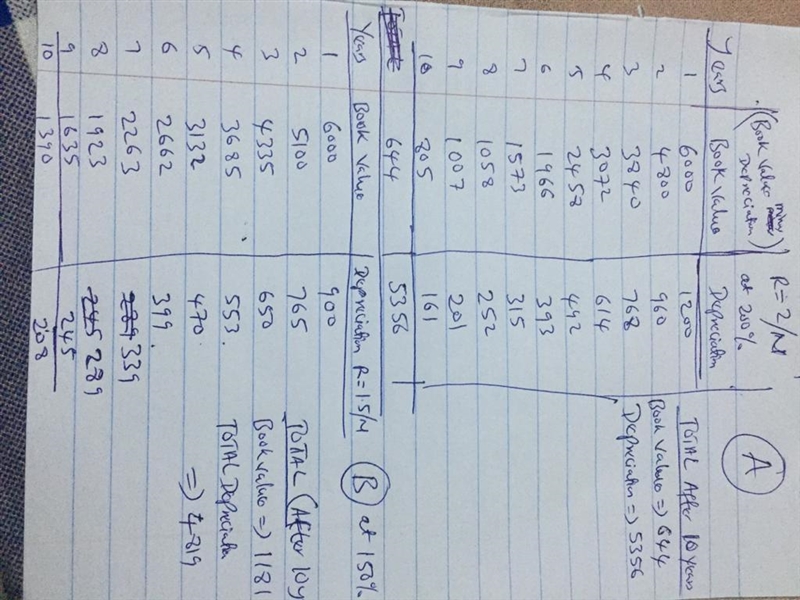 (Book value minus Depreciation) R = 2/N
at 200% (A)
Years Book value Depreciation
1 6000 1200 TOTAL After 10 years
2 4800 960 Book value => 644
3 3840 768 Depreciation => 5356
4 3072 614
5 2458 492
6 1966 393
7 1573 315
8 1058 252
9 1007 201
10 805 161
644 5356
Years Book value Depreciation R = 1.5/N (B) at 150%
1 6000 900
2 5100 765 TOTAL (After 10y
3 4335 650 Book value => 1181
4 3685 553. TOTAL Depreciation
5 3132 470. => 4819
6 2662 399.
7 2263 339
8 1923 245 289
9 1635 245
10 1390 208